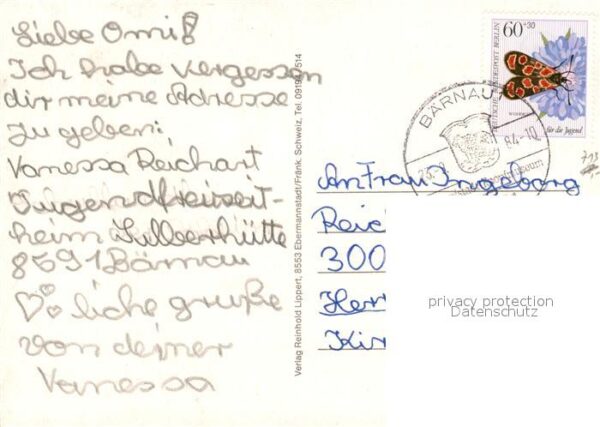 Liebe Omi!
Ich habe vergessen
dir meine Adresse
zu geben:
Vanessa Reichart
Jugendfreizeit-
heim Silberhütte
8591 Bärnau
♡♡ liche gruße
von deiner
Vanessa
Verlag Reinhold Lippert, 8553 Ebermannstadt/Fränk. Schweiz, Tel. 09194/514
60+30
DEUTSCHE BUNDESPOST BERLIN
für die Jugend
BÄRNAU
84-10
An Frau Ingeborg
Reic
300
Her
Kir
privacy protection
Datenschutz